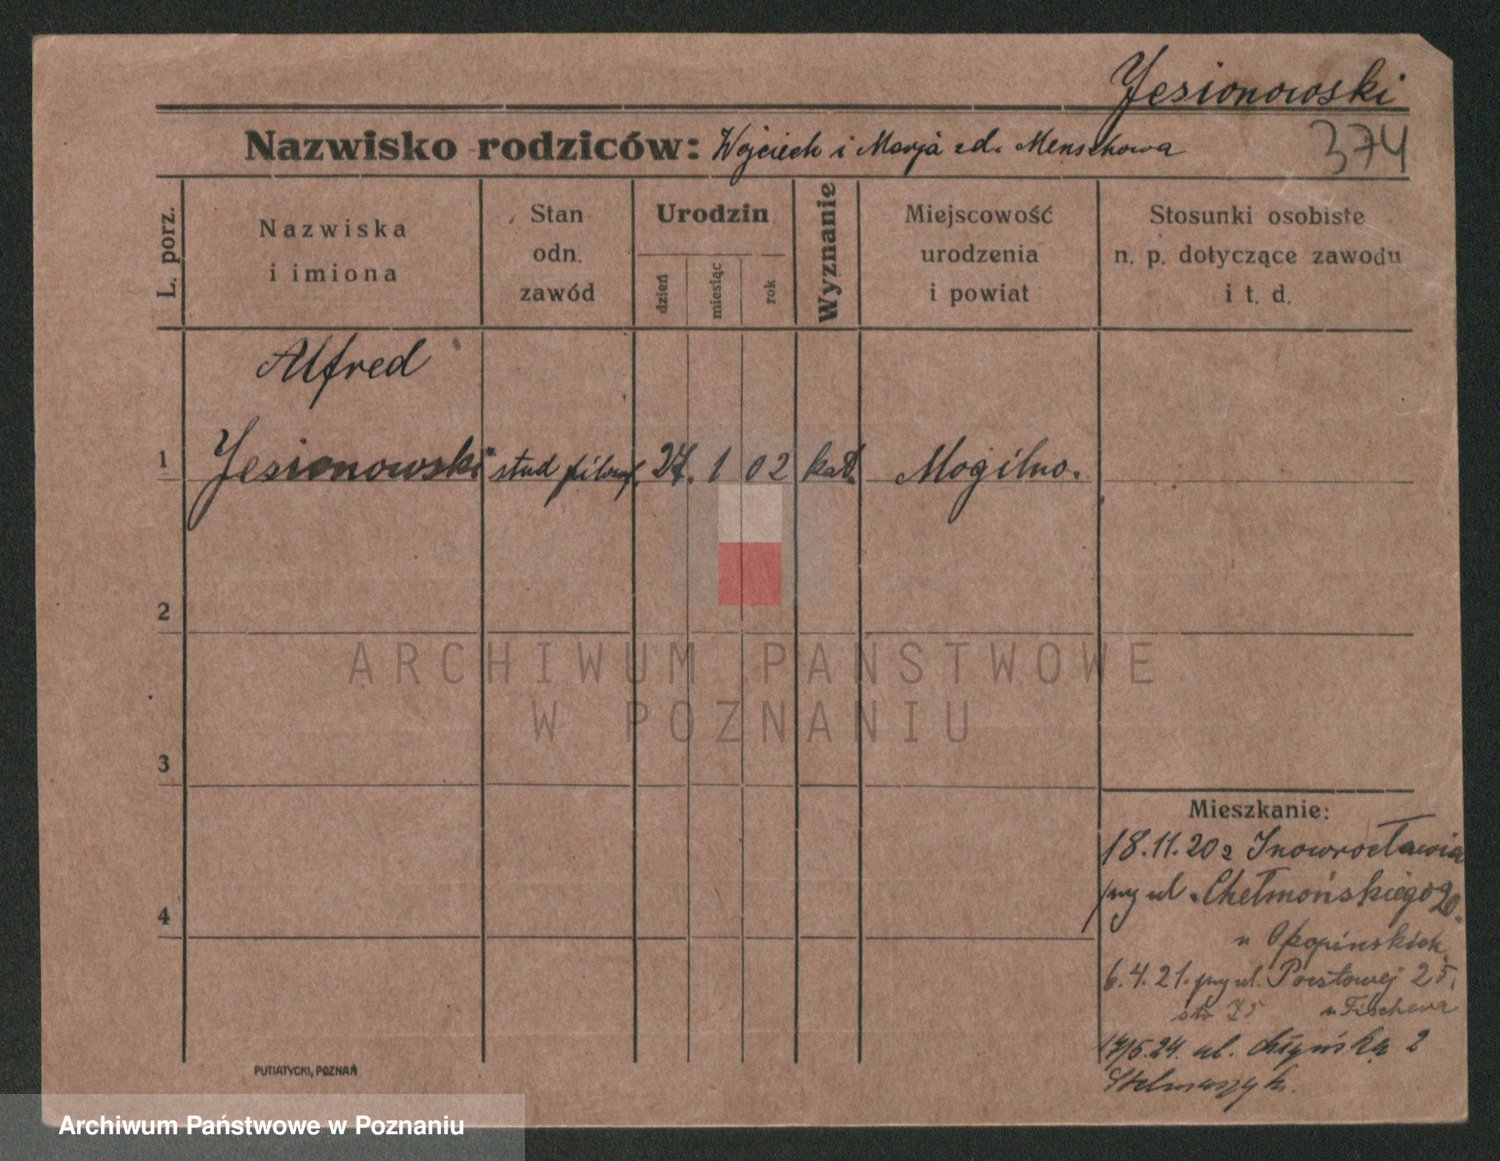 Jesionowski
Nazwisko rodziców: Wojciech i Marja zd. Menschowa
374
L. porz.
Nazwiska
i imiona
Stan
odn.
zawód
Urodzin
dzień
miesiąc
rok
Wyznanie
Miejscowość
urodzenia
i powiat
Stosunki osobiste
n. p. dotyczące zawodu
i t. d.
Alfred
1 Jesionowski stud filozof. 1 02 kat. Mogilno.
2
ARCHIWUM PAŃSTWOWE
W POZNANIU
3
Mieszkanie:
18.11.20 z Inowrocławia
przy ul. Chełmońskiego 20.
4
u
6.4.21. przy ul. Pocztowej 25,
u Fischera
ul. 2
PUTIATYCKI, POZNAŃ
Archiwum Państwowe w Poznaniu